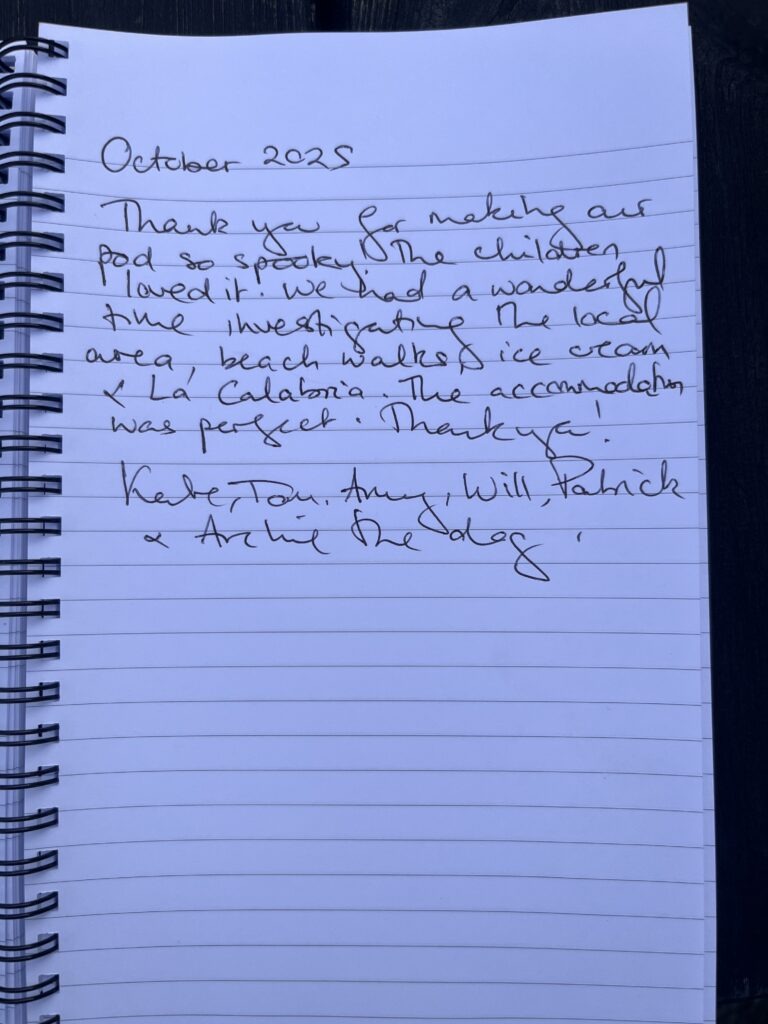 October 2025
Thank you for making our
pod so spooky! The children
loved it! We had a wonderful
time investigating the local
area, beach walks, ice cream
& La Calabria. The accommodation
was perfect. Thank you!
Kate, Tom, Amy, Will, Patrick
& Archie the dog.